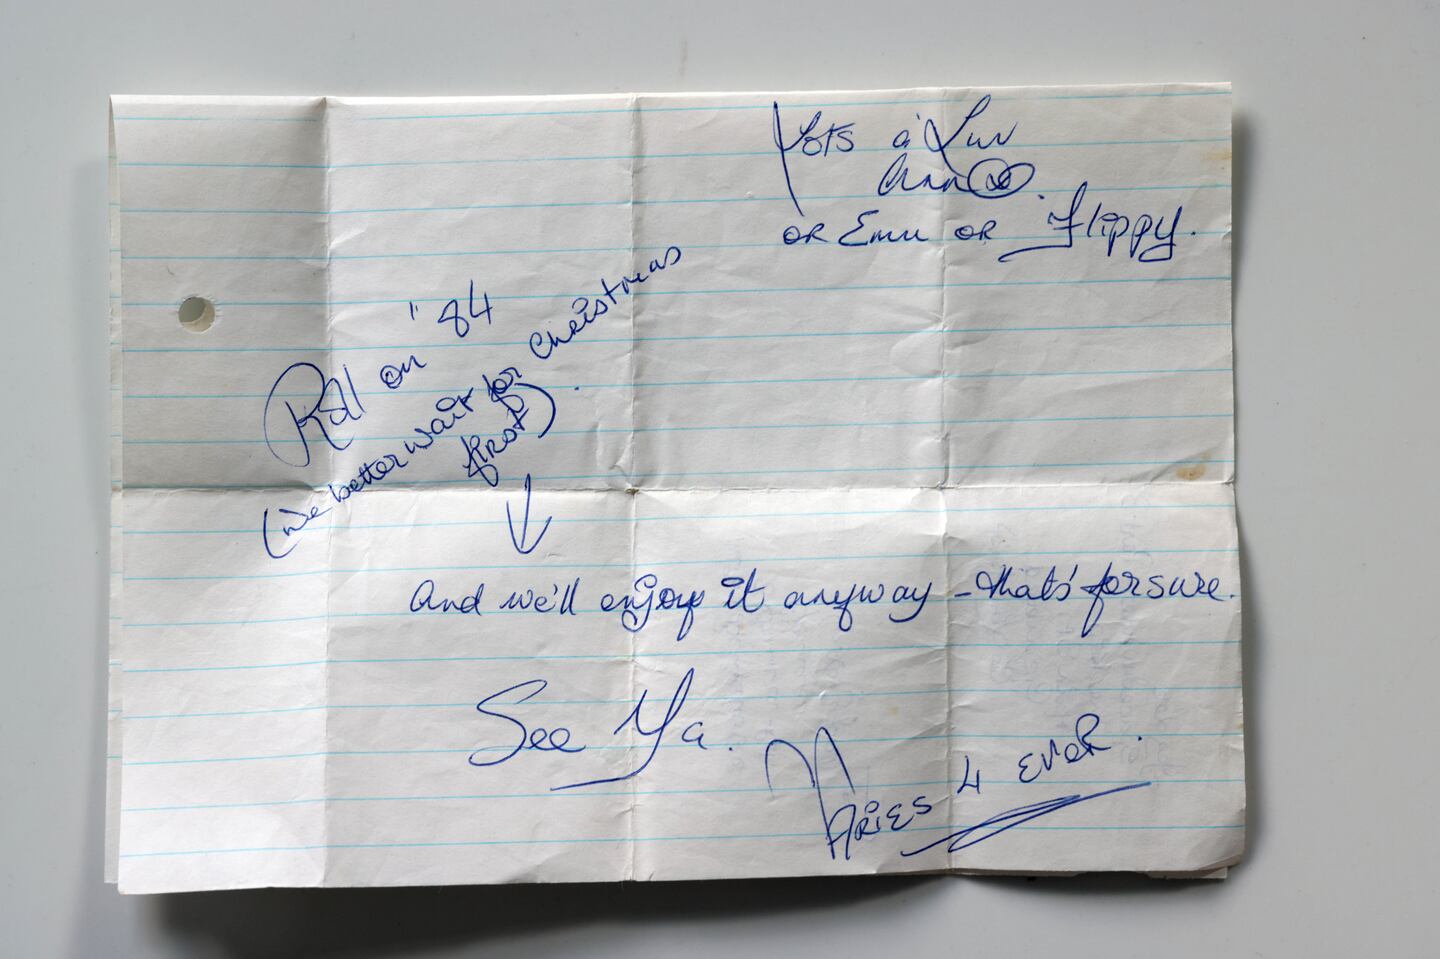 Lots a' Luv
Ann
or Emu or Flippy.
Roll on "84
(we better wait for Christmas
first).
And we'll enjoy it anyway - that's' for sure.
See Ya.
ARIES 4 EVER.